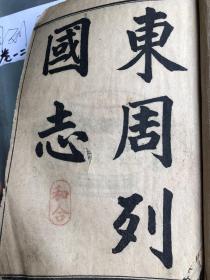 東周列
國志
和合
卷一二